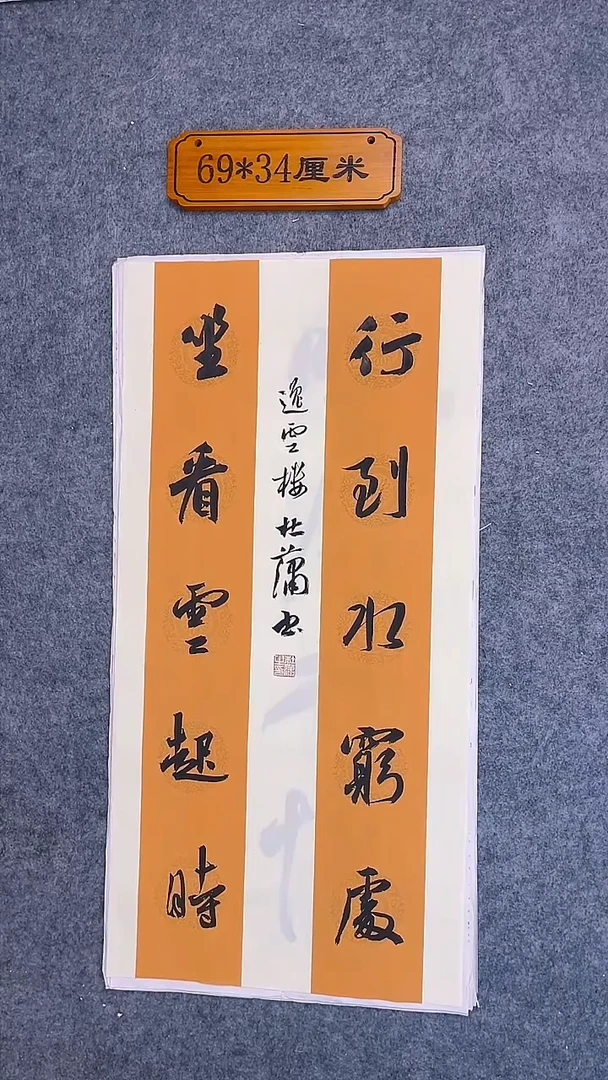 69*34厘米
行到水窮處
坐看雲起時
逸雲樓杜蒲書